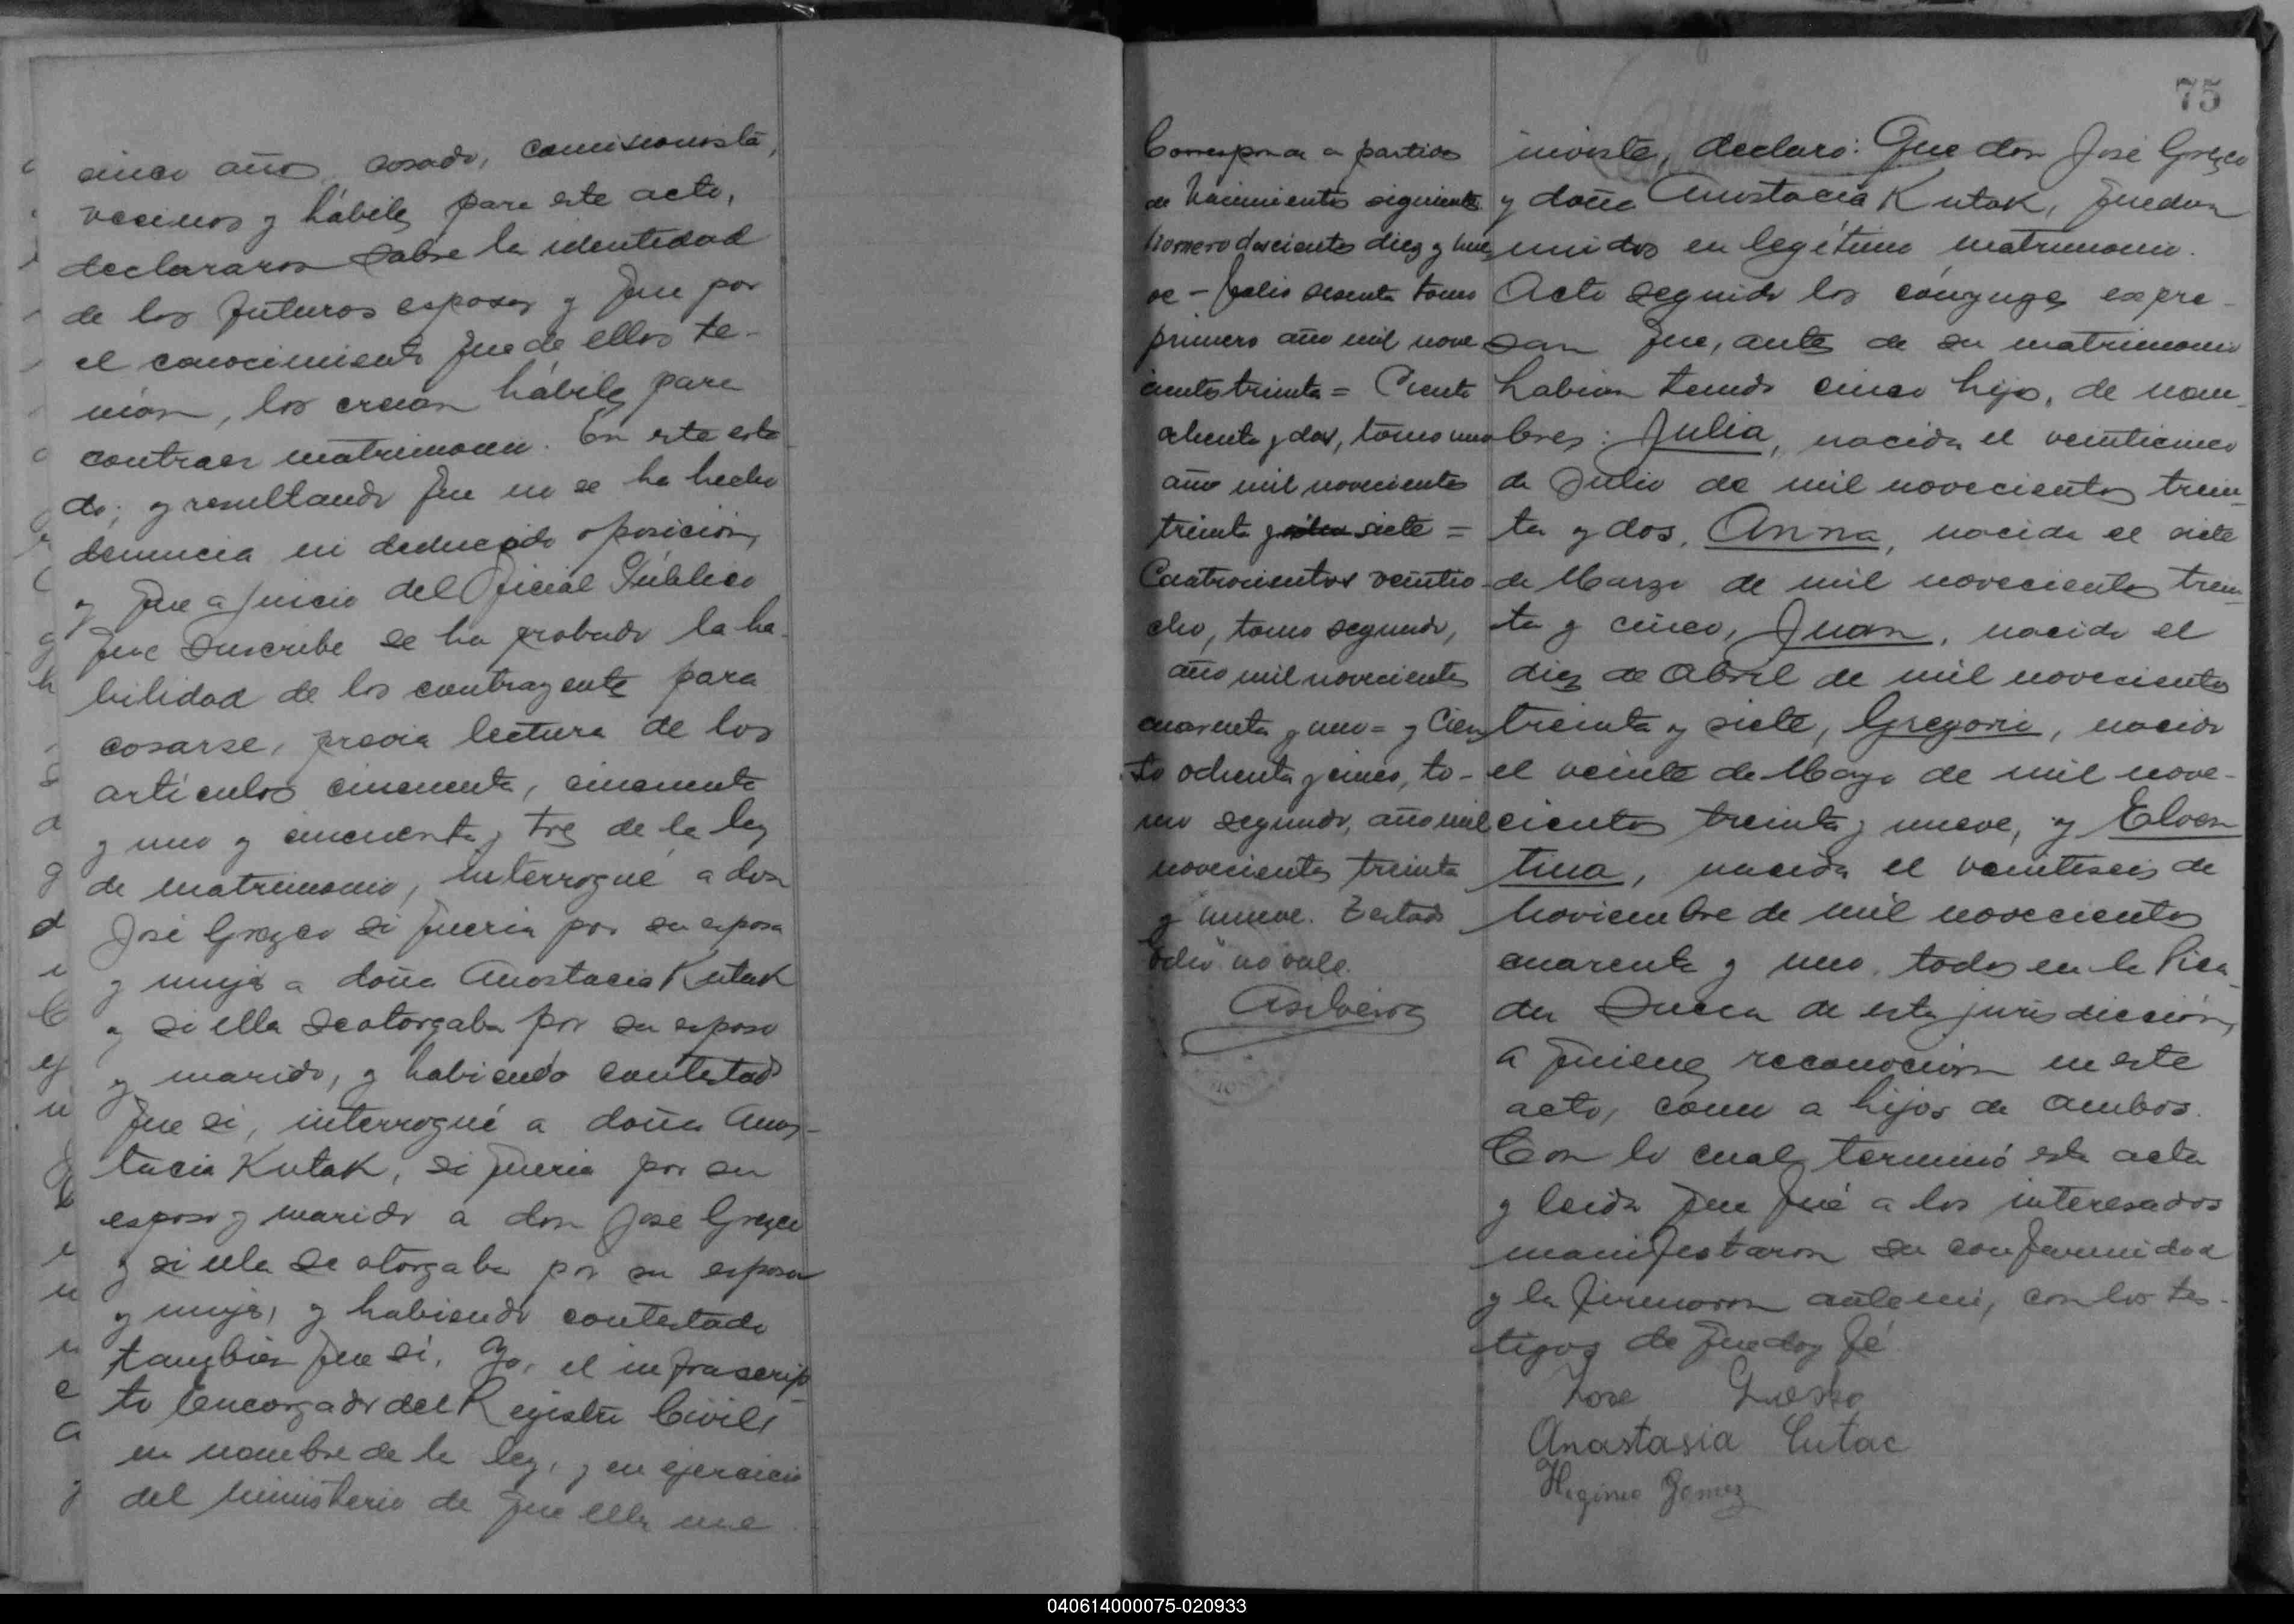 cinco años, casado, comisionista,
vecinos y hábiles para este acto,
declararon sobre la identidad
de los futuros esposos y que por
el conocimiento que de ellos te-
nian, los creian hábiles para
contraer matrimonio. En este esta
do, y resultando que no se ha hecho
denuncia ni deducido oposición,
y que a juicio del Oficial Público
que suscribe se ha probado la ha-
bilidad de los contrayentes para
casarse, previa lectura de los
artículos cincuenta, cincuenta
y uno y cincuenta y tres de la ley
de matrimonio, interrogué a don
José Grezco si queria por su esposa
y mujer a doña Anastacia Kutak
y si ella se otorgaba por su esposo
y marido, y habiendo contestado
que si, interrogué a doña Anas-
tacia Kutak, si queria por su
esposo y marido a don José Grezco
y si ella se otorgaba por su esposa
y mujer, y habiendo contestado
tambien que si. Yo, el infrascrip-
to Encargado del Registro Civil,
en nombre de la ley, y en ejercicio
del ministerio de que ella me
75
inviste, declaro: Que don José Grezco
y doña Anastacia Kutak, quedan
unidos en legítimo matrimonio.
Acto seguido los cónyuges expre-
san que, antes de su matrimonio
habian tenido cinco hijos, de nom-
bres: Julia, nacida el veinticinco
de Julio de mil novecientos trein-
ta y dos, Anna, nacida el siete
de Marzo de mil novecientos trein-
ta y cinco, Juan, nacido el
diez de Abril de mil novecientos
treinta y siete, Gregorio, nacido
el veinte de Mayo de mil nove-
cientos treinta y nueve, y Elven
tina, nacida el veintiseis de
Noviembre de mil novecientos
cuarenta y uno, todos en la Pica-
da Sueca de esta jurisdicción,
a quienes reconocian en este
acto, como a hijos de ambos.
Con lo cual terminó este acta
y leida que fué a los interesados
manifestaron su conformidad
y la firmaron ante mi, con los tes-
tigos de que doy fé
Jose Gresko
Anastasia Cutac
Higinio Gomez
Corresponde a partidas
de Nacimientos siguientes
Número doscientos diez y nue
ve - folio sesenta tomo
primero año mil nove
cientos treinta = Ciento
ochenta y dos, tomo uno
año mil novecientos
treinta y ocho siete =
Cuatrocientos veintio-
cho, tomo segundo,
año mil novecientos
cuarenta y uno = y Cien
to ochenta y cinco, to-
mo segundo, año mil
novecientos treinta
y nueve. Testado
"ocho" no vale.
040614000075-020933